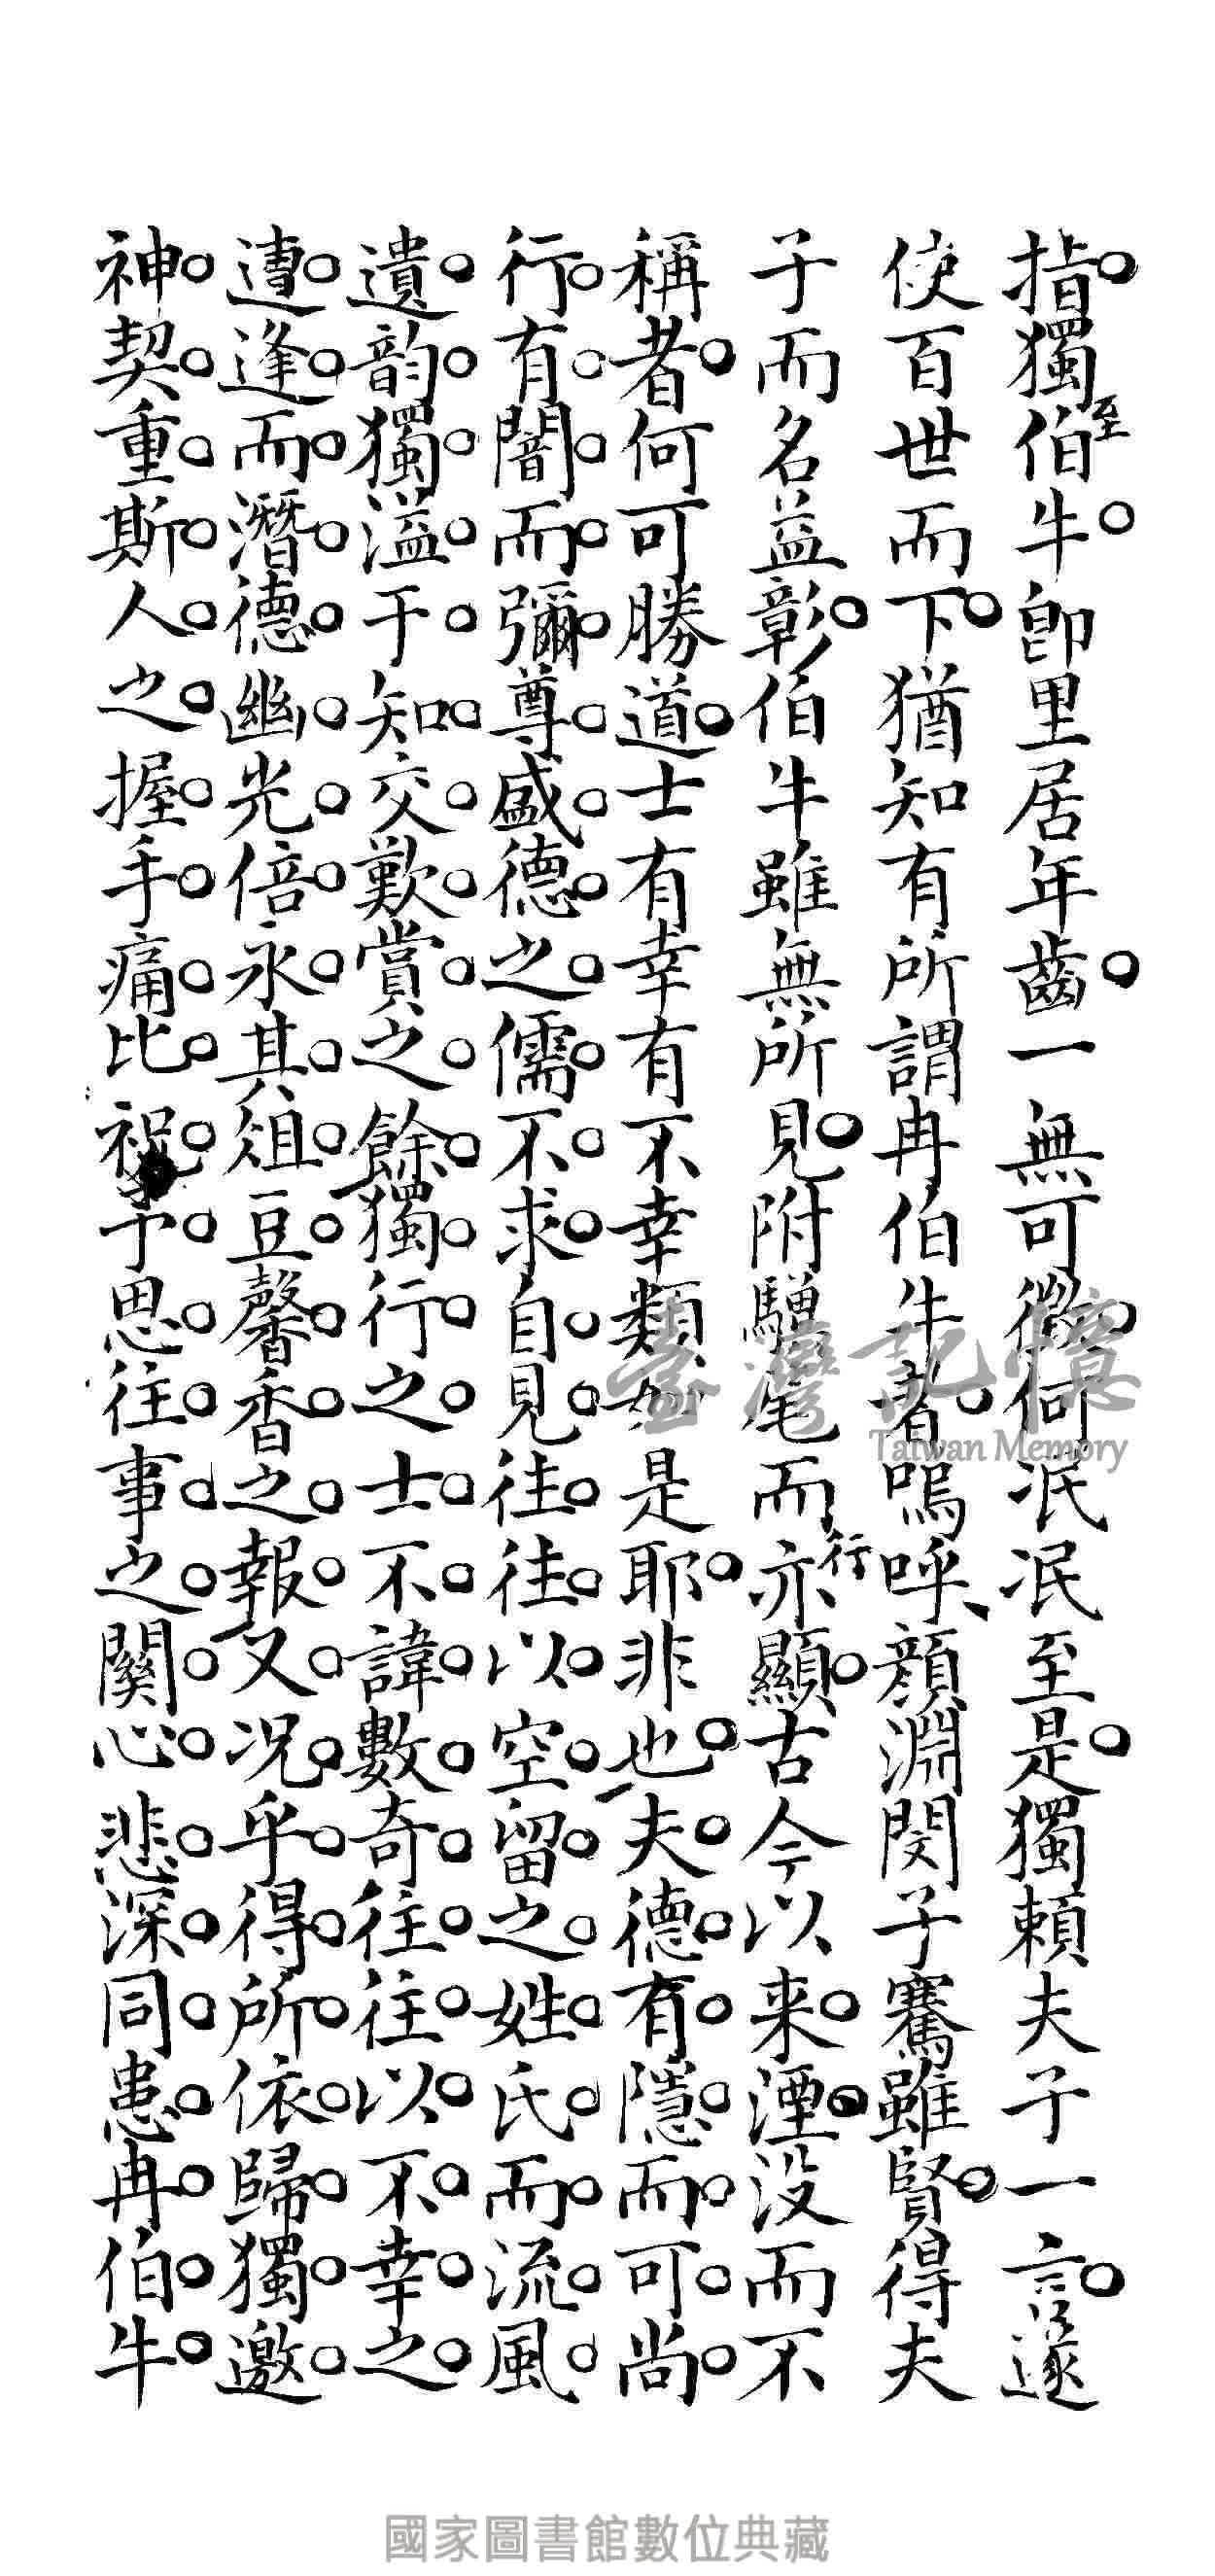 指獨至伯牛即里居年齒一無可徵何泯泯至是獨賴夫子一言遂
使百世而下猶知有所謂冉伯牛者嗚呼顏淵閔子騫雖賢得夫
子而名益彰伯牛雖無所見附驥尾而行亦顯古今以来湮没而不
稱者何可勝道士有幸有不幸類如是耶非也夫德有隱而可尚
行有闇而彌尊盛德之儒不求自見往往以空留之姓氏而流風
遺韵獨溢于知交歎賞之餘獨行之士不諱數奇往往以不幸之
遭逢而潛德幽光倍永其俎豆馨香之報又况乎得所依歸獨邀
神契重斯人之握手痛比予思往事之關心悲深同患冉伯牛
臺灣記憶
Taiwan Memory
國家圖書館數位典藏